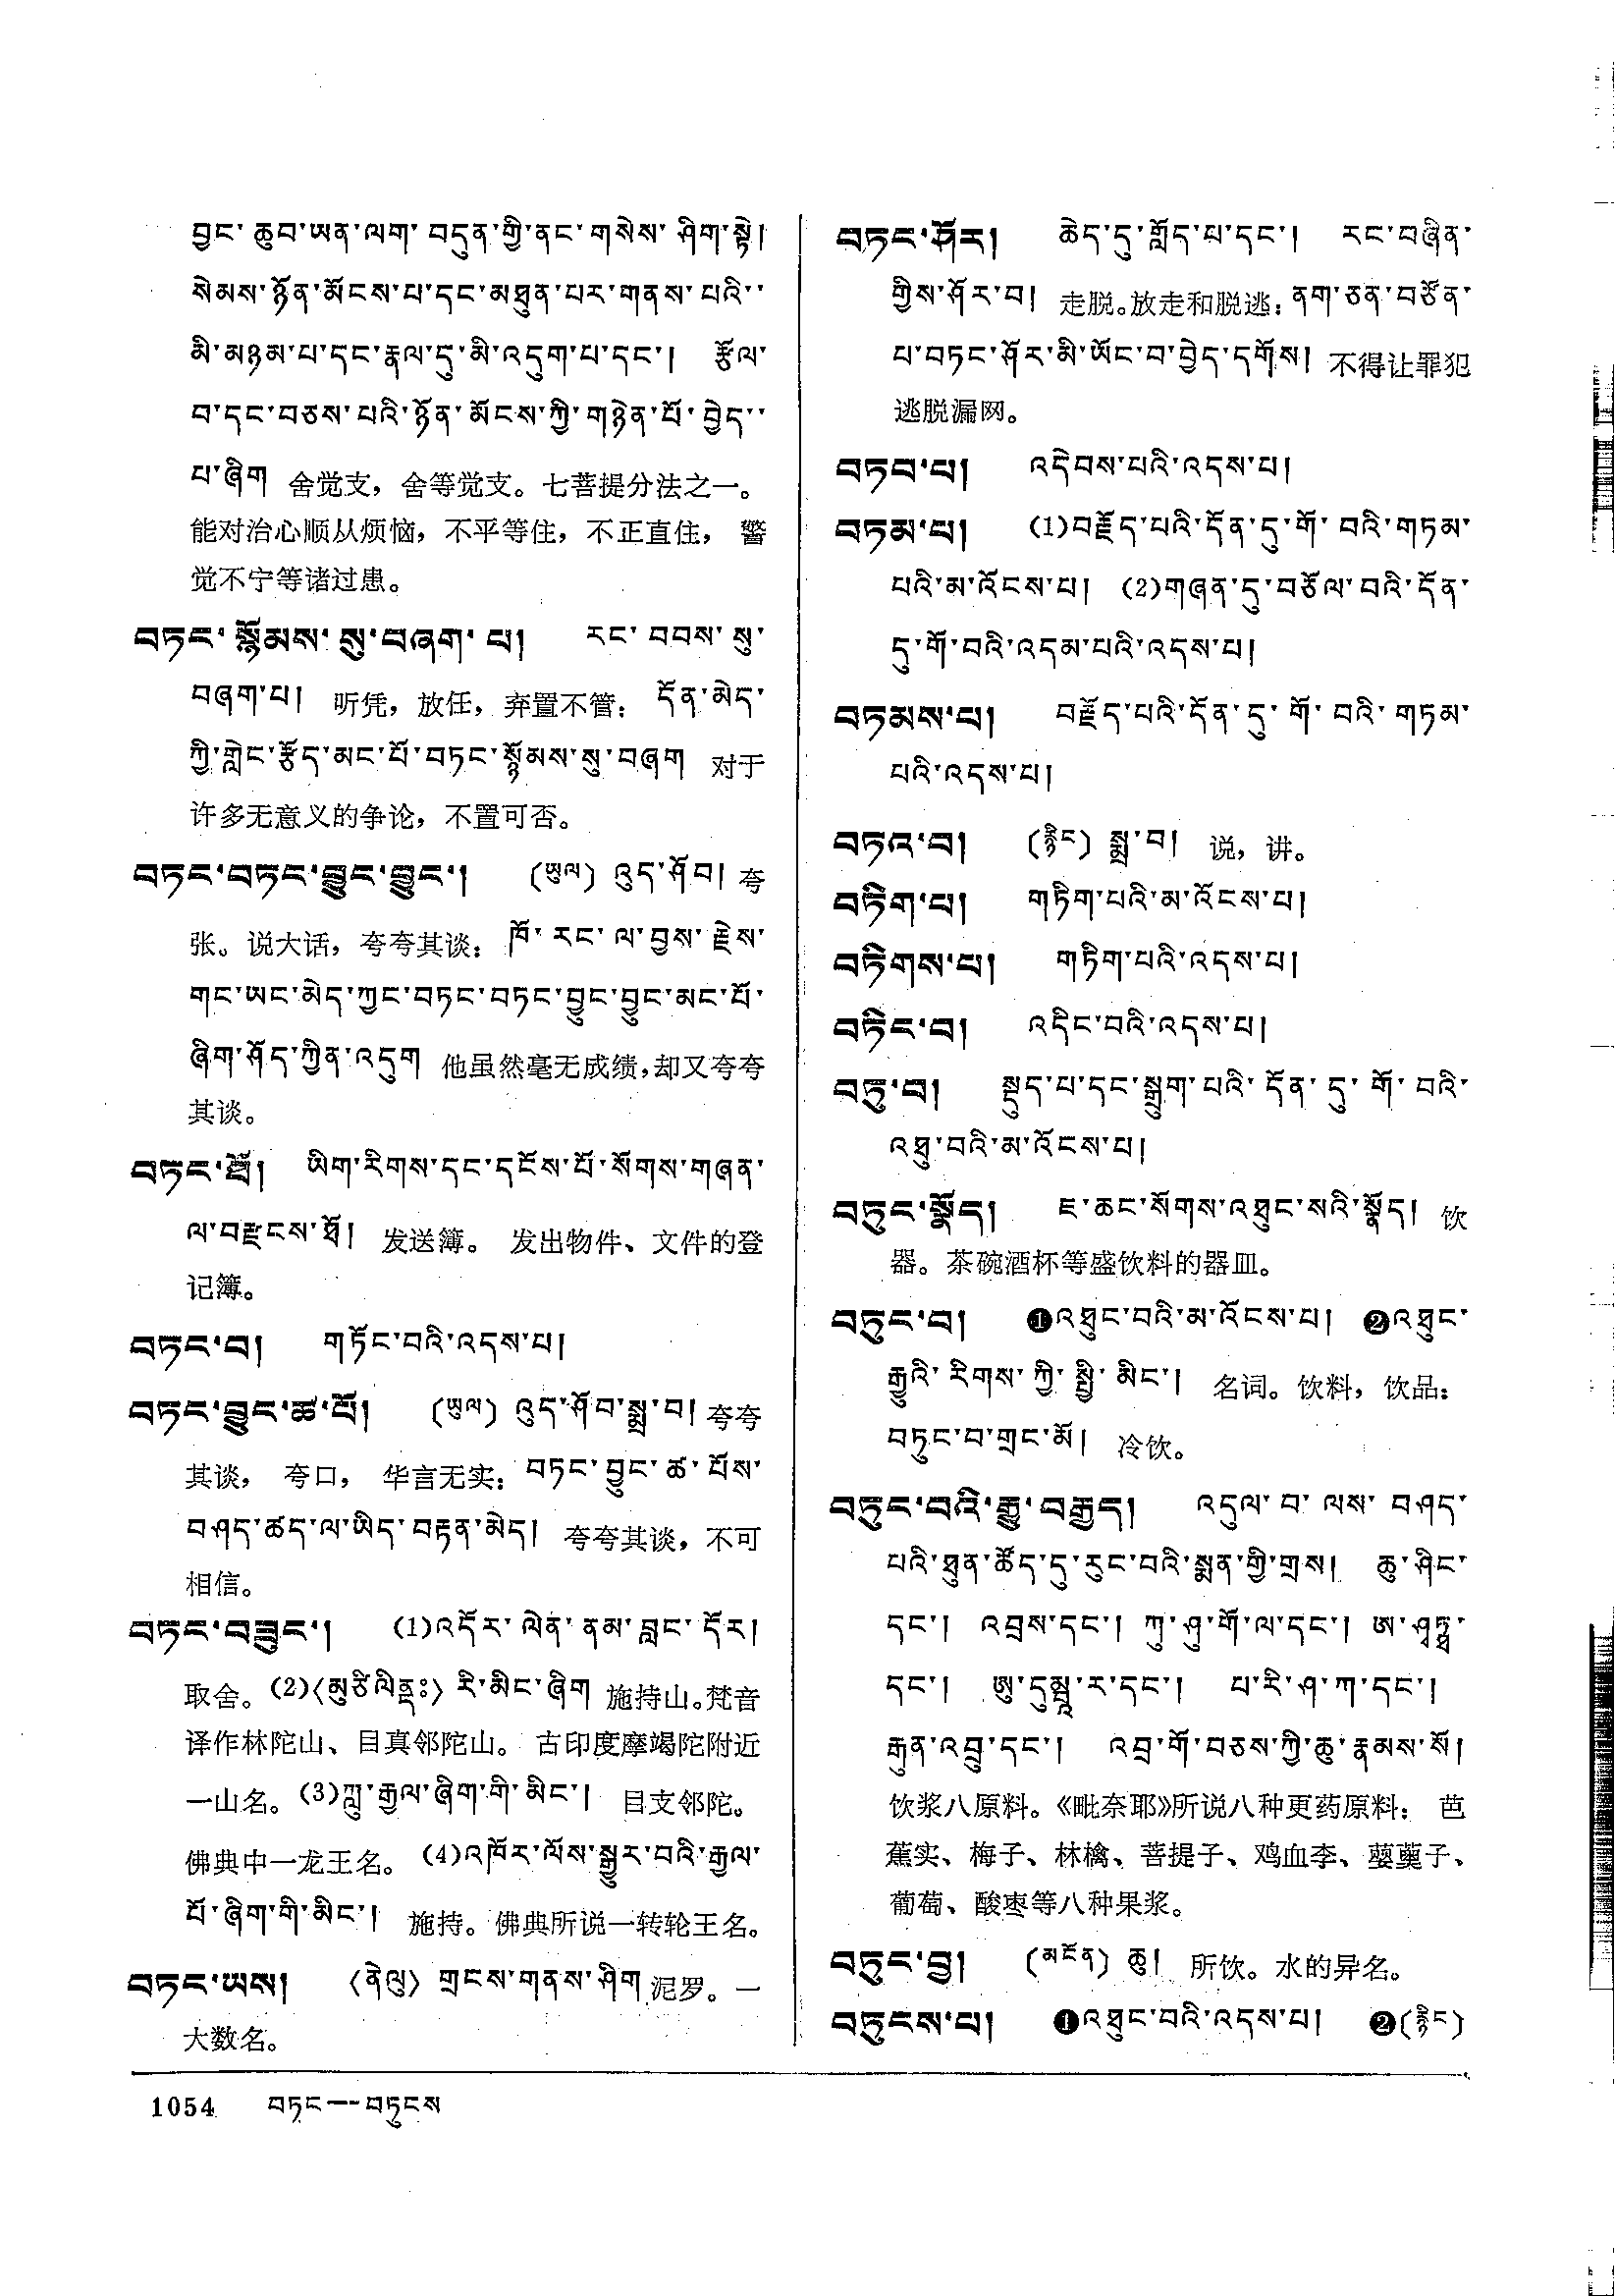 བྱང་ཆུབ་ཡན་ལག་བདུན་གྱི་ནང་གསེས་ཤིག་སྟེ།
སེམས་ཉོན་མོངས་པ་དང་མཐུན་པར་གནས་པའི་
མི་མཉམ་པ་དང་རྣལ་དུ་མི་འདུག་པ་དང་། རྩོལ་
བ་དང་བཅས་པའི་ཉོན་མོངས་ཀྱི་གཉེན་པོ་བྱེད་
པ་ཞིག 舍觉支，舍等觉支。七菩提分法之一。
能对治心顺从烦恼，不平等住，不正直住，警
觉不宁等诸过患。
བཏང་སྙོམས་སུ་བཞག་པ། རང་བབས་སུ་
བཞག་པ། 听凭，放任，弃置不管：དོན་མེད་
ཀྱི་གླེང་རྩོད་མང་པོ་བཏང་སྙོམས་སུ་བཞག 对于
许多无意义的争论，不置可否。
བཏང་བཏང་བྱུང་བྱུང་། (ཡུལ) འུད་ཤོབ། 夸
张。说大话，夸夸其谈：ཁོ་རང་ལ་བྱས་རྗེས་
གང་ཡང་མེད་ཀྱང་བཏང་བཏང་བྱུང་བྱུང་མང་པོ་
ཞིག་ཤོད་ཀྱིན་འདུག 他虽然毫无成绩，却又夸夸
其谈。
བཏང་ཐོ། ཡིག་རིགས་དང་དངོས་པོ་སོགས་གཞན་
ལ་བརྫངས་ཐོ། 发送簿。发出物件、文件的登
记簿。
བཏང་བ། གཏོང་བའི་འདས་པ།
བཏང་བྱུང་ཚ་པོ། (ཡུལ) འུད་ཤོབ་སྨྲ་བ། 夸夸
其谈，夸口，华言无实：བཏང་བྱུང་ཚ་པོས་
བཤད་ཚད་ལ་ཡིད་བརྟན་མེད། 夸夸其谈，不可
相信。
བཏང་བཟུང་། (1)འདོར་ལེན་ནམ་བླང་དོར།
取舍。(2)〈མུཙིལིནྡཿ〉རི་མིང་ཞིག 施持山。梵音
译作林陀山、目真邻陀山。古印度摩竭陀附近
一山名。(3)ཀླུ་རྒྱལ་ཞིག་གི་མིང་། 目支邻陀。
佛典中一龙王名。(4)འཁོར་ལོས་སྒྱུར་བའི་རྒྱལ་
པོ་ཞིག་གི་མིང་། 施持。佛典所说一转轮王名。
བཏང་ཡས། 〈ནེལུ〉གྲངས་གནས་ཤིག 泥罗。一
大数名。
བཏང་ཤོར། ཆེད་དུ་གློད་པ་དང་། རང་བཞིན་
གྱིས་ཤོར་བ། 走脱。放走和脱逃：ནག་ཅན་བཙོན་
པ་བཏང་ཤོར་མི་ཡོང་བ་བྱེད་དགོས། 不得让罪犯
逃脱漏网。
བཏབ་པ། འདེབས་པའི་འདས་པ།
བཏམ་པ། (1)བརྗོད་པའི་དོན་དུ་གོ་བའི་གཏམ་
པའི་མ་འོངས་པ། (2)གཞན་དུ་བཅོལ་བའི་དོན་
དུ་གོ་བའི་འདམ་པའི་འདས་པ།
བཏམས་པ། བརྗོད་པའི་དོན་དུ་གོ་བའི་གཏམ་
པའི་འདས་པ།
བཏའ་བ། (རྙིང) སྨྲ་བ། 说，讲。
བཏིག་པ། གཏིག་པའི་མ་འོངས་པ།
བཏིགས་པ། གཏིག་པའི་འདས་པ།
བཏིང་བ། འདིང་བའི་འདས་པ།
བཏུ་བ། སྡུད་པ་དང་སྒྲུག་པའི་དོན་དུ་གོ་བའི་
འཐུ་བའི་མ་འོངས་པ།
བཏུང་སྣོད། ཇ་ཆང་སོགས་འཐུང་སའི་སྣོད། 饮
器。茶碗酒杯等盛饮料的器皿。
བཏུང་བ། ❶འཐུང་བའི་མ་འོངས་པ། ❷འཐུང་
རྒྱུའི་རིགས་ཀྱི་སྤྱི་མིང་། 名词。饮料，饮品：
བཏུང་བ་གྲང་མོ། 冷饮。
བཏུང་བའི་རྒྱུ་བརྒྱད། འདུལ་བ་ལས་བཤད་
པའི་ཐུན་ཚོད་དུ་རུང་བའི་སྨན་གྱི་གྲས། ཆུ་ཤིང་
དང་། འབྲས་དང་། ཀུ་ཤུ་གོ་ལ་དང་། ཨ་ཤྭཏྠ་
དང་། ཨུ་དུམྦཱ་ར་དང་། པ་རི་ཤ་ཀ་དང་།
རྒུན་འབྲུ་དང་། འབྲ་གོ་བཅས་ཀྱི་ཆུ་རྣམས་སོ།
饮浆八原料。《毗奈耶》所说八种更药原料：芭
蕉实、梅子、林檎、菩提子、鸡血李、蘡薁子、
葡萄、酸枣等八种果浆。
བཏུང་བྱ། (མངོན) ཆུ། 所饮。水的异名。
བཏུངས་པ། ❶འཐུང་བའི་འདས་པ། ❷(རྙིང)
1054 བཏང——བཏུངས